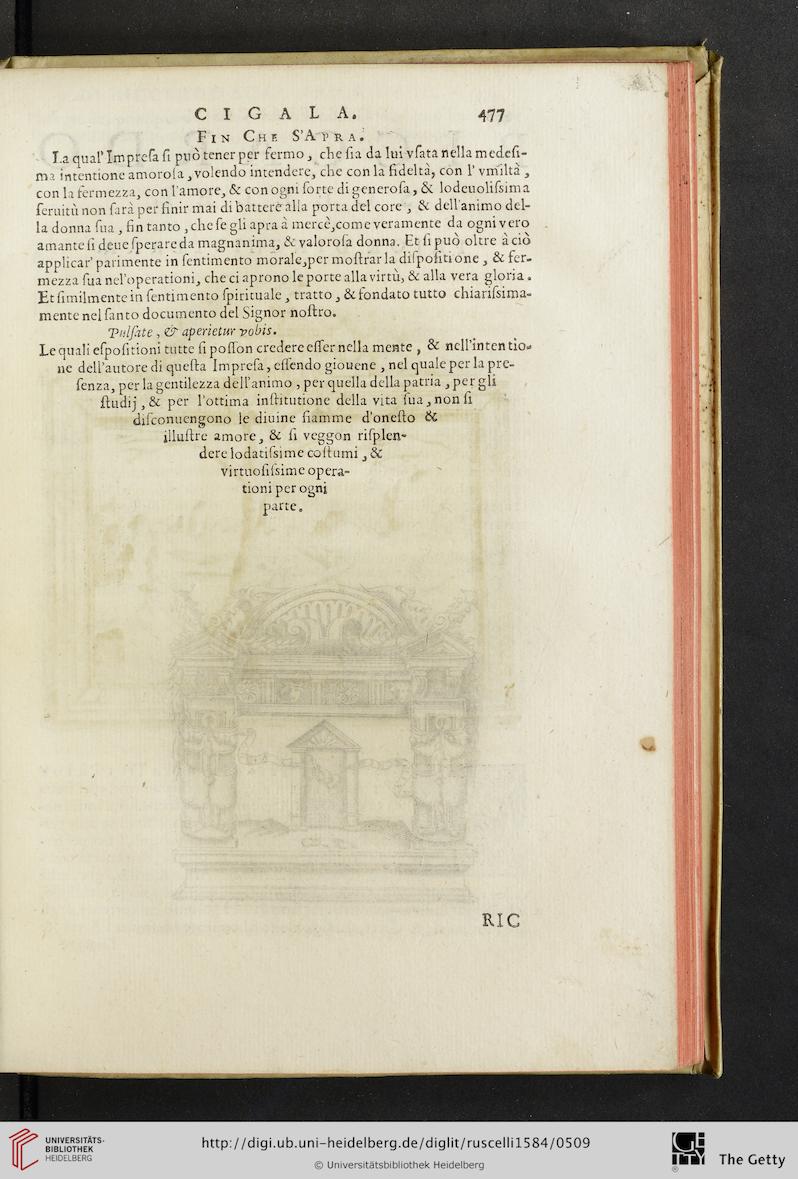 CIGALA. 477
FIN CHE S'APRA.
La qual' Impreſa ſi può tener per fermo, che ſia da lui vſata nella medeſi-
ma intentione amoroſa, volendo intendere, che con la fideltà, con l' vmiltà,
con la fermezza, con l'amore, & con ogni ſorte di generoſa, & lodeuoliſsima
ſeruitù non ſarà per finir mai di battere alla porta del core, & dell'animo del-
la donna ſua, fin tanto, che ſe gli apra à mercè, come veramente da ogni vero
amante ſi deue ſperare da magnanima, & valoroſa donna. Et ſi può oltre à ciò
applicar' parimente in ſentimento morale, per moſtrar la diſpoſitione, & fer-
mezza ſua nel'operationi, che ci aprono le porte alla virtù, & alla vera gloria.
Et ſimilmente in ſentimento ſpirituale, tratto, & fondato tutto chiariſsima-
mente nel ſanto documento del Signor noſtro.
Pulſate, & aperietur vobis.
Le quali eſpoſitioni tutte ſi poſſon credere eſſer nella mente, & nell'intentio-
ne dell'autore di queſta Impreſa, eſſendo giouene, nel quale per la pre-
ſenza, per la gentilezza dell'animo, per quella della patria, per gli
ſtudij, & per l'ottima inſtitutione della vita ſua, non ſi
diſconuengono le diuine fiamme d'oneſto &
illuſtre amore, & ſi veggon riſplen-
dere lodatiſsime coſtumi, &
virtuoſiſsime opera-
tioni per ogni
parte.
RIC
UNIVERSITÄTS-
BIBLIOTHEK
HEIDELBERG
http://digi.ub.uni-heidelberg.de/diglit/ruscelli1584/0509
© Universitätsbibliothek Heidelberg
GETTY
® The Getty